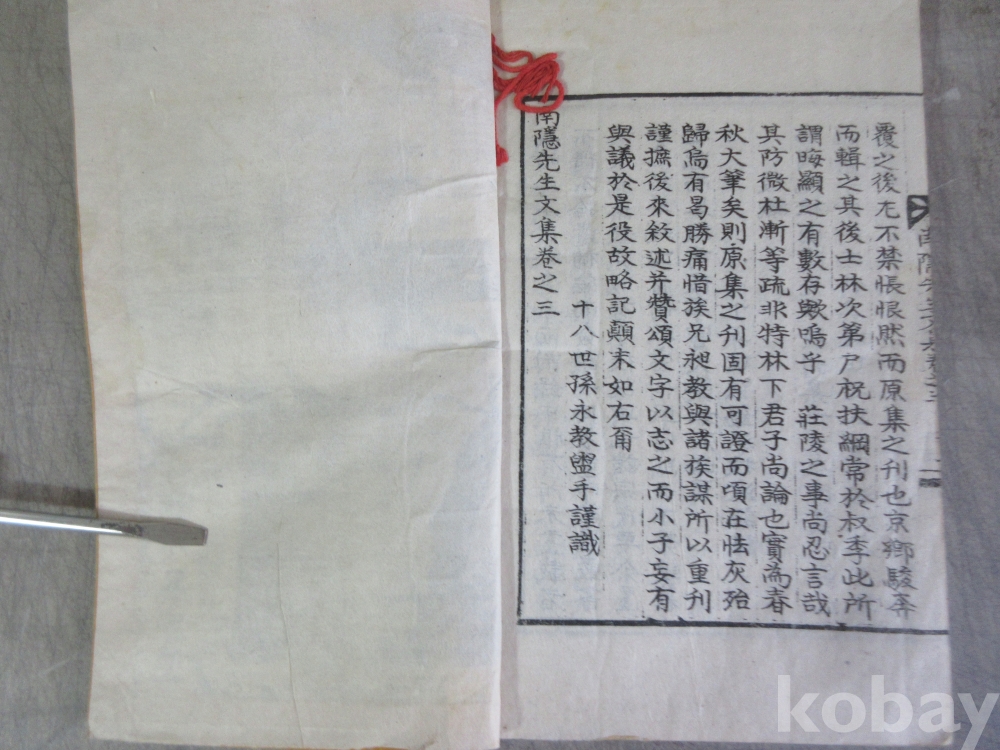 覆之後尤不禁悵恨然而原集之刊也京鄉駿奔
而輯之其後士林次第尸祝扶綱常於叔季此所
謂晦顯之有數存歟嗚乎 莊陵之事尚忍言哉
其防微杜漸等疏非特林下君子尚論也實為春
秋大筆矣則原集之刊固有可證而頃在怯灰殆
歸烏有曷勝痛惜族兄昶教與諸族謀所以重刊
謹摭後來敘述并贊頌文字以志之而小子妄有
與議於是役故略記顛末如右爾
十八世孫永教盥手謹識
南隱先生文集卷之三
kobay